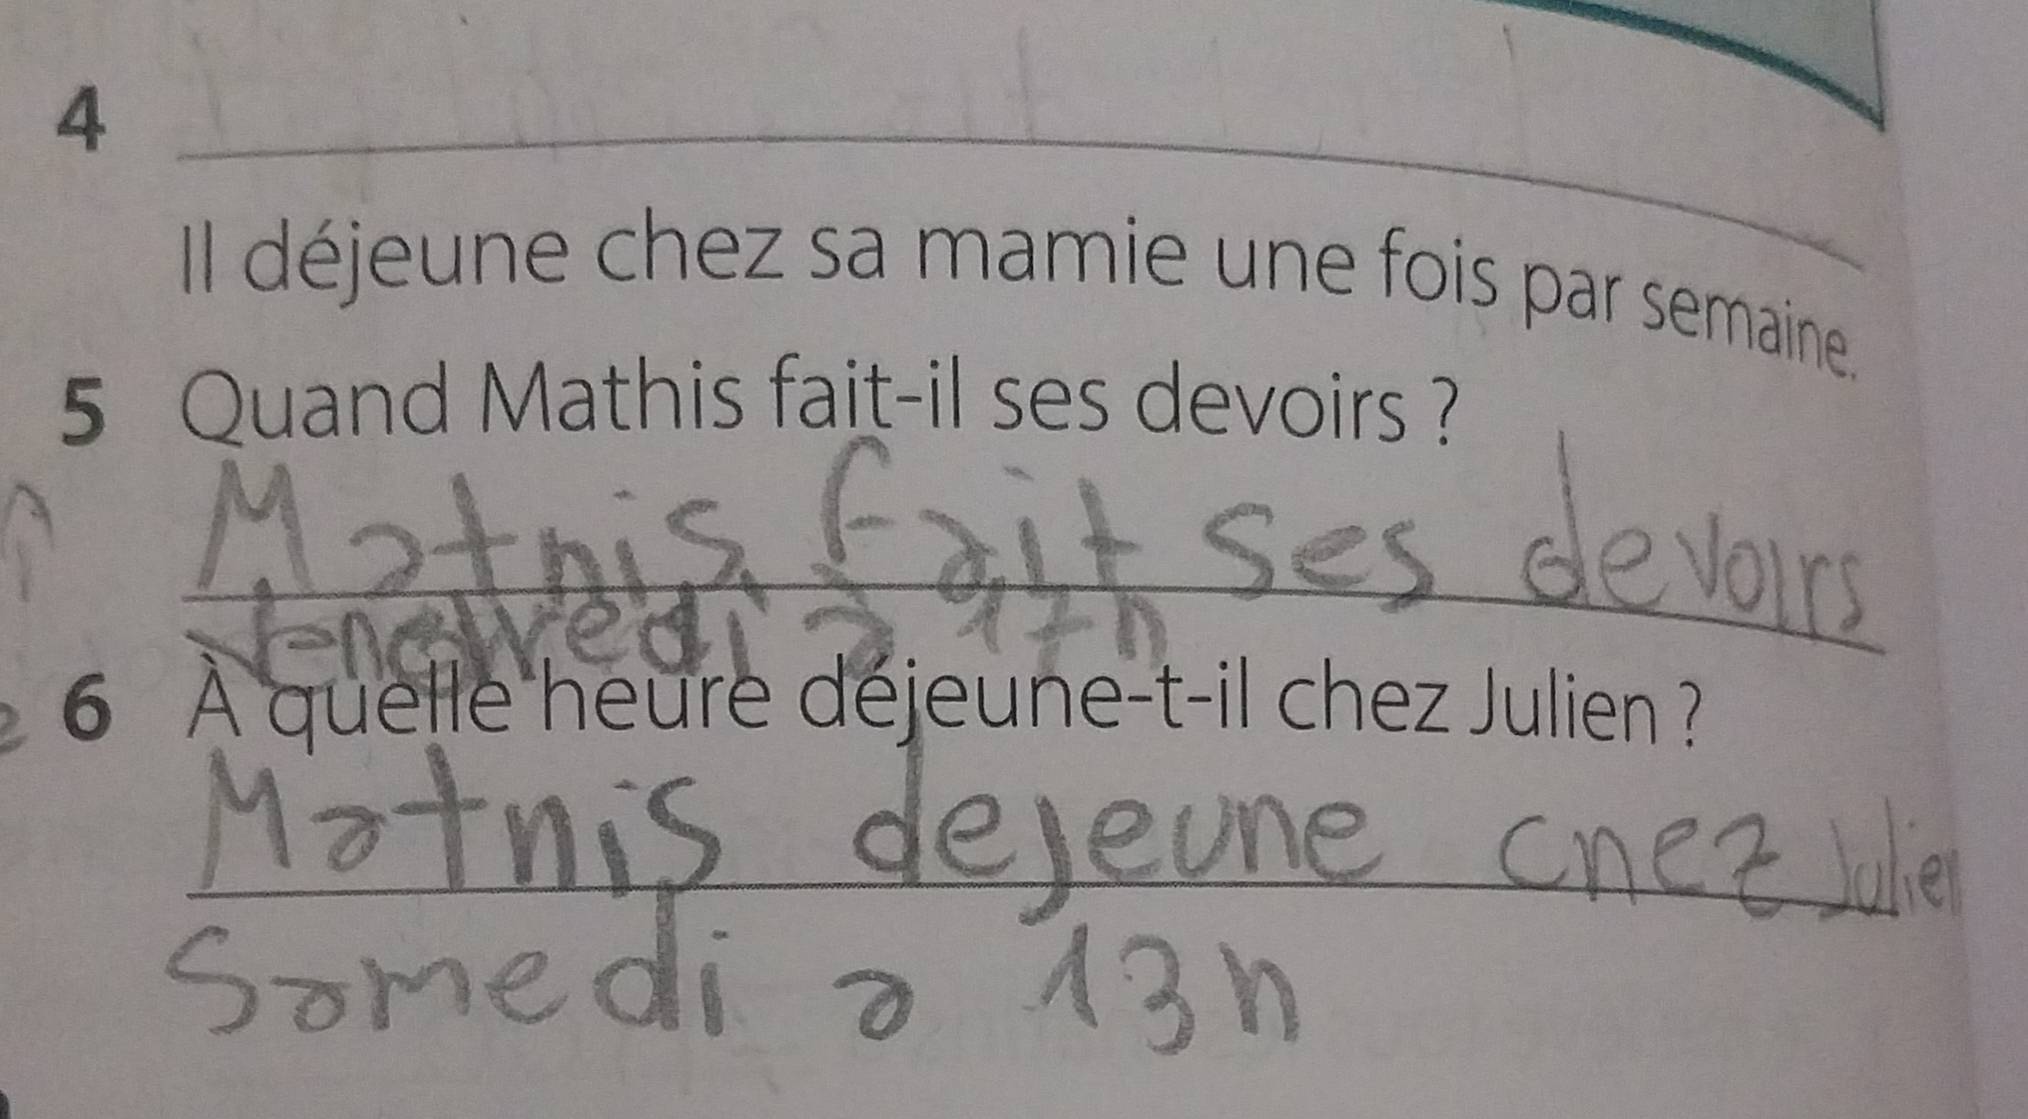 4
Il déjeune chez sa mamie une fois par semaine.
5 Quand Mathis fait-il ses devoirs ?
Mathis fait ses devoirs
vendredi à 17h
6 À quelle heure déjeune-t-il chez Julien ?
Mathis dejeune chez Julien
Samedi a 13h